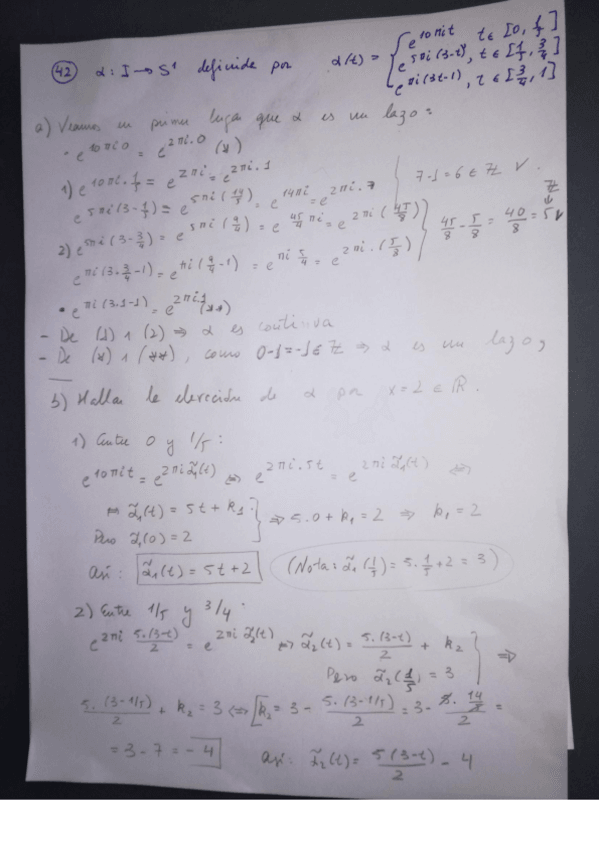 (42) α: I → S¹ definida por α(t) = { e^{10πit}, t ∈ [0, 1/5]
e^{5πi(3-t)}, t ∈ [1/5, 3/4]
e^{πi(3t-1)}, t ∈ [3/4, 1]
a) Veamos en primer lugar que α es un lazo:
• e^{10πi0} = e^{2πi·0} (*)
1) e^{10πi·1/5} = e^{2πi} = e^{2πi·1}
e^{5πi(3-1/5)} = e^{5πi(14/5)} = e^{14πi} = e^{2πi·7} } 7-1=6 ∈ Z ✓.
2) e^{5πi(3-3/4)} = e^{5πi(9/4)} = e^{45/4 πi} = e^{2πi(45/8)}
e^{πi(3·3/4-1)} = e^{πi(9/4-1)} = e^{πi 5/4} = e^{2πi·(5/8)} } 45/8 - 5/8 = 40/8 = 5 ∈ Z ✓
• e^{πi(3·1-1)} = e^{2πi·1} (**)
- De (1) y (2) ⇒ α es continua
- De (*) y (**), como 0-1=-1 ∈ Z ⇒ α es un lazo,
b) Hallar la elevación de α por x=2 ∈ R.
1) Entre 0 y 1/5:
e^{10πit} = e^{2πi α̃₁(t)} ⇔ e^{2πi·5t} = e^{2πi α̃₁(t)} ⇔
⇔ α̃₁(t) = 5t + k₁
Pero α̃₁(0) = 2 } ⇒ 5·0 + k₁ = 2 ⇒ k₁ = 2
Así: α̃₁(t) = 5t+2 (Nota: α̃₁(1/5) = 5·1/5 + 2 = 3)
2) Entre 1/5 y 3/4:
e^{2πi 5·(3-t)/2} = e^{2πi α̃₂(t)} ⇔ α̃₂(t) = 5·(3-t)/2 + k₂
Pero α̃₂(1/5) = 3 } ⇒
5·(3-1/5)/2 + k₂ = 3 ⇔ k₂ = 3 - 5·(3-1/5)/2 = 3 - 5·14/5/2 =
= 3 - 7 = -4 Así: α̃₂(t) = 5(3-t)/2 - 4